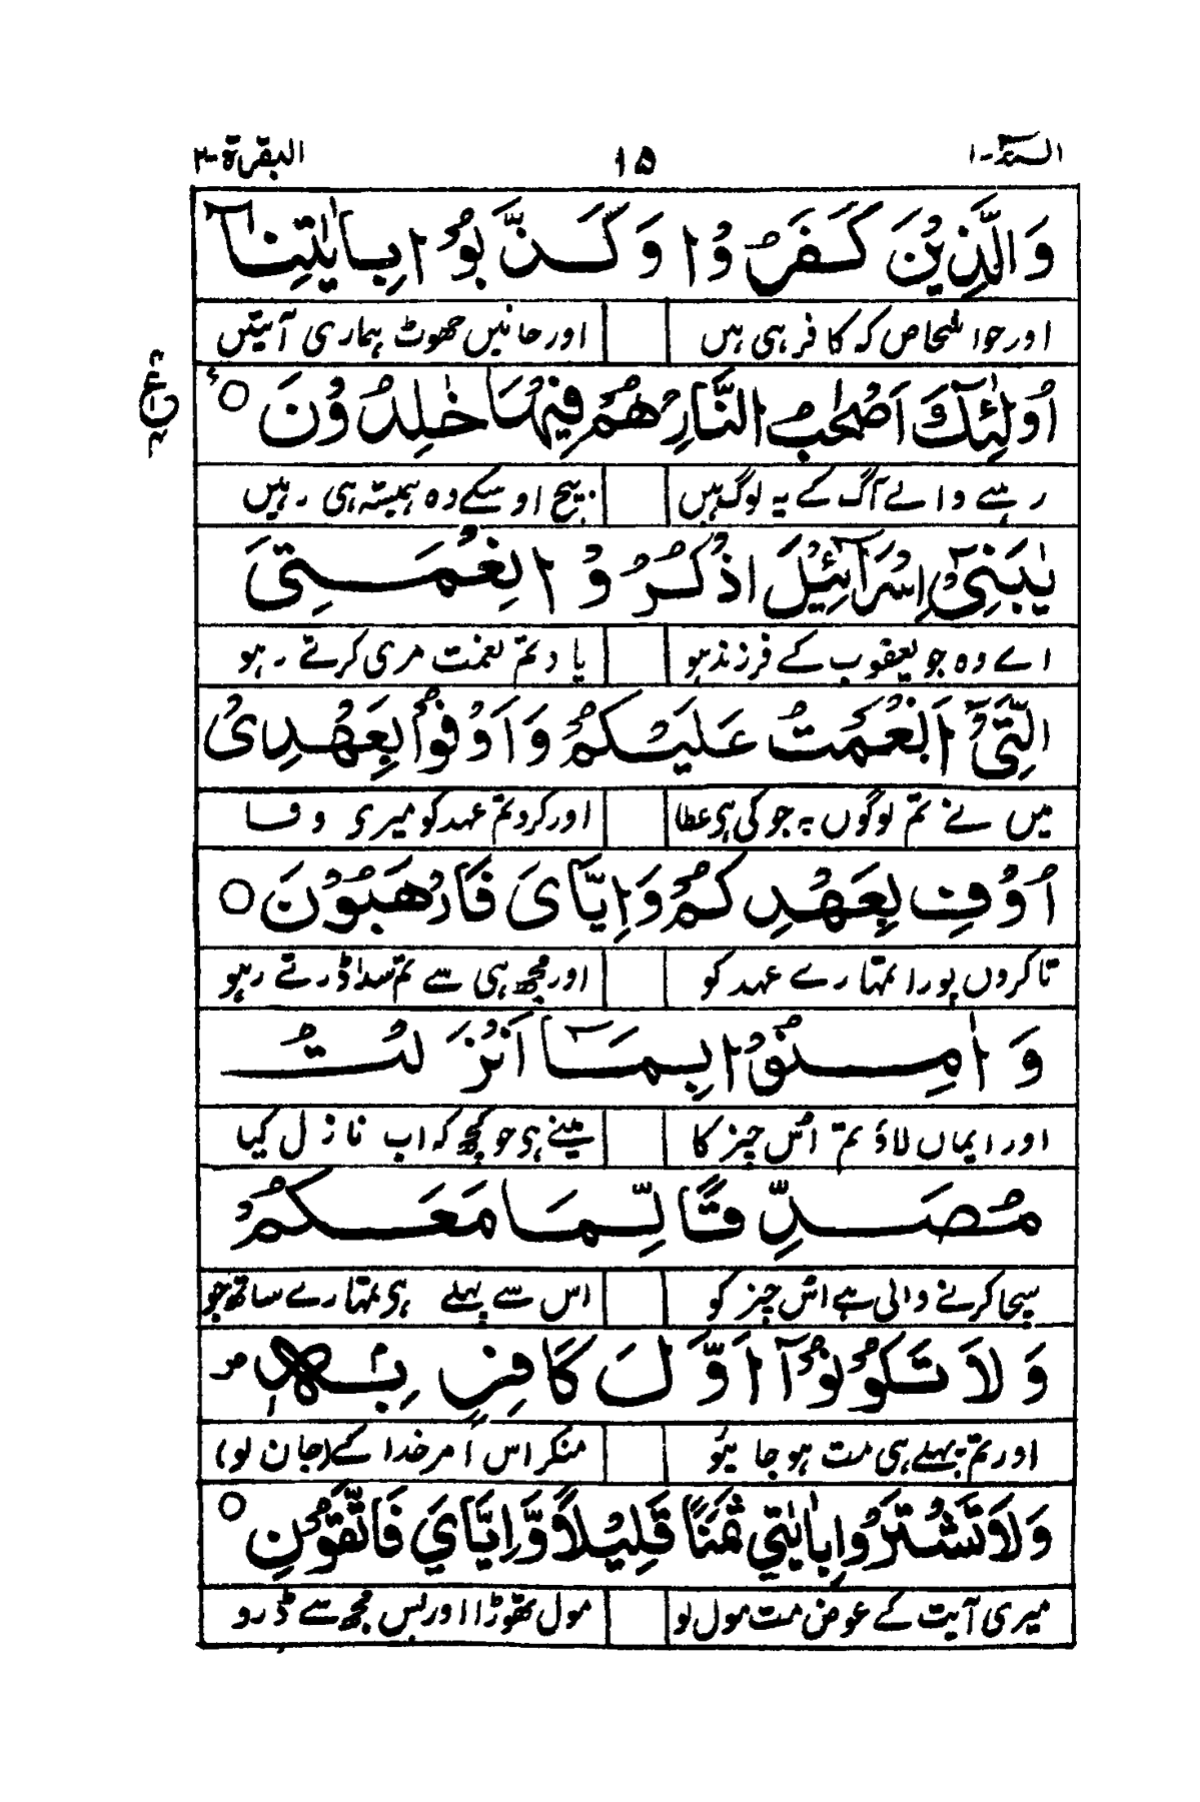 الٓمّٓ-۱ ۱۵ البقرة-۲
وَالَّذِيْنَ كَفَرُوْا وَكَذَّبُوْا بِاٰيٰتِنَآ
اور جو اشخاص کہ کافر ہی ہیں اور جانیں جھوٹ ہماری آیتیں
اُولٰٓئِكَ اَصْحٰبُ النَّارِ هُمْ فِيْهَا خٰلِدُوْنَ ○
رہنے والے آگ کے یہ لوگ ہیں بیچ اوسکے وہ ہمیشہ ہی رہیں
يٰبَنِيْٓ اِسْرَآئِيْلَ اذْكُرُوْا نِعْمَتِيَ
اے وہ جو یعقوب کے فرزند ہو یاد تم نعمت مری کرتے رہو
الَّتِيْٓ اَنْعَمْتُ عَلَيْكُمْ وَاَوْفُوْا بِعَهْدِيْ
میں نے تم لوگوں پہ جو کی ہی عطا اور کرو تم عہد کو میری وفا
اُوْفِ بِعَهْدِكُمْ وَاِيَّايَ فَارْهَبُوْنَ ○
تا کروں پورا تمہارے عہد کو اور مجھ ہی سے تم سدا ڈرتے رہو
وَاٰمِنُوْا بِمَآ اَنْزَلْتُ
اور ایماں لاؤ تم اُس چیز کا مینے ہی جو کچھ کہ اب نازل کیا
مُصَدِّقًا لِّمَا مَعَكُمْ
سچا کرنے والی ہے اُس چیز کو اس سے پہلے ہی تمہارے ساتھ جو
وَلَا تَكُوْنُوْآ اَوَّلَ كَافِرٍۭ بِهٖ ص
اور تم پہلے ہی مت ہو جائیو منکر اس امر خدا کے (جان لو)
وَلَا تَشْتَرُوْا بِاٰيٰتِيْ ثَمَنًا قَلِيْلًا وَّاِيَّايَ فَاتَّقُوْنِ ○
میری آیت کے عوض مت مول لو مول تھوڑا اور بس مجھ سے ڈرو